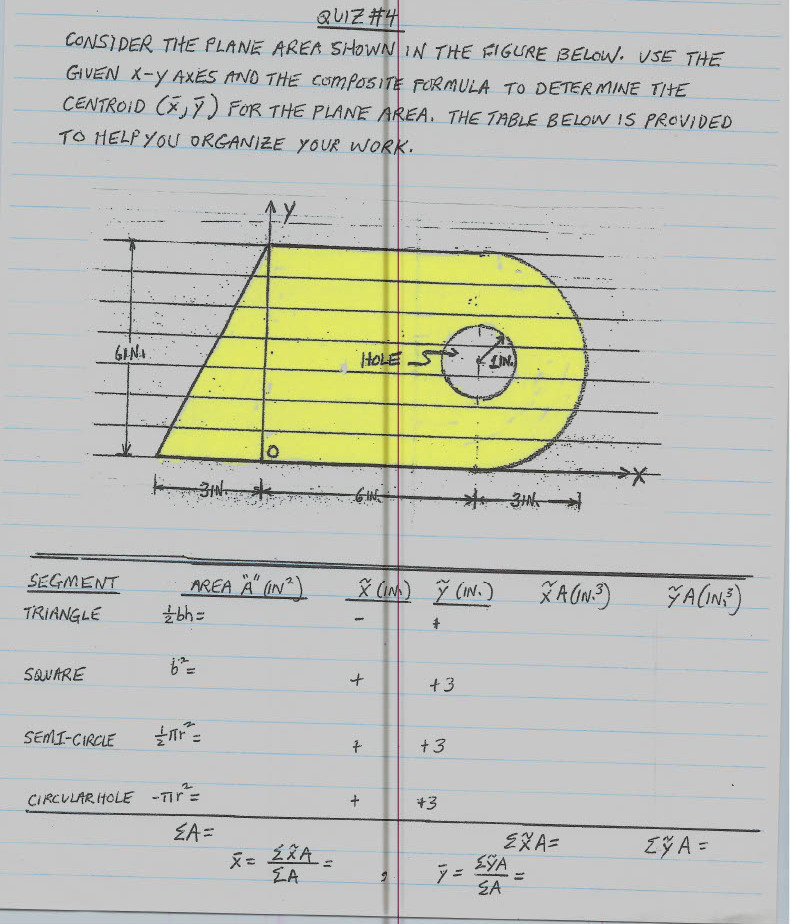 QUIZ #4
CONSIDER THE PLANE AREA SHOWN IN THE FIGURE BELOW. USE THE
GIVEN X-Y AXES AND THE COMPOSITE FORMULA TO DETERMINE THE
CENTROID (x̄, ȳ) FOR THE PLANE AREA. THE TABLE BELOW IS PROVIDED
TO HELP YOU ORGANIZE YOUR WORK.
Y
6IN.
HOLE
1IN.
O
X
3IN.
6IN.
3IN.
SEGMENT AREA "A" (IN²) x̃ (IN.) ỹ (IN.) x̃A(IN.³) ỹA(IN.³)
TRIANGLE ½bh= - +
SQUARE b²= + +3
SEMI-CIRCLE ½πr²= + +3
CIRCULAR HOLE -πr²= + +3
ΣA= Σx̃A= ΣỹA=
x̄ = Σx̃A/ΣA = , ȳ = ΣỹA/ΣA =